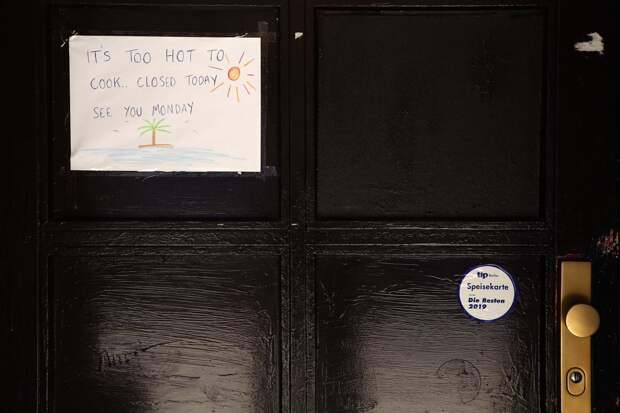 IT'S TOO HOT TO
COOK.. CLOSED TODAY
SEE YOU MONDAY
tip Berlin
Speisekarte
Die Besten
2019